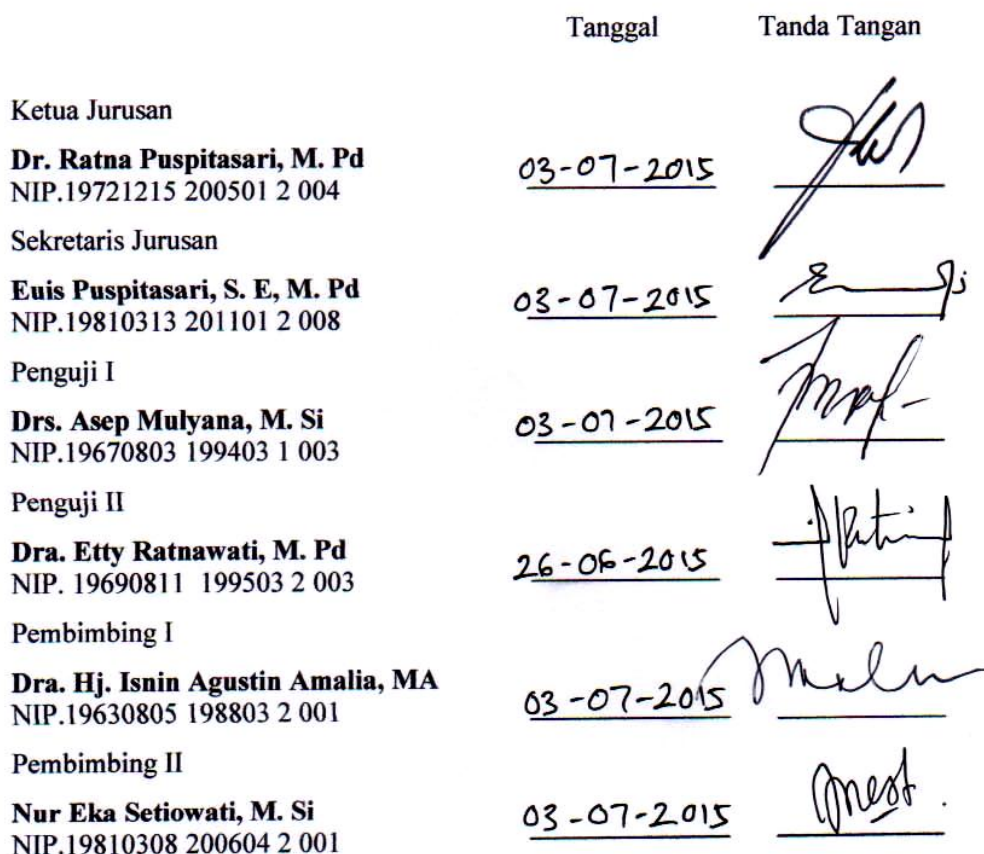 Tanggal Tanda Tangan
Ketua Jurusan
Dr. Ratna Puspitasari, M. Pd
NIP.19721215 200501 2 004
03-07-2015
Sekretaris Jurusan
Euis Puspitasari, S. E, M. Pd
NIP.19810313 201101 2 008
03-07-2015
Penguji I
Drs. Asep Mulyana, M. Si
NIP.19670803 199403 1 003
03-07-2015
Penguji II
Dra. Etty Ratnawati, M. Pd
NIP. 19690811 199503 2 003
26-06-2015
Pembimbing I
Dra. Hj. Isnin Agustin Amalia, MA
NIP.19630805 198803 2 001
03-07-2015
Pembimbing II
Nur Eka Setiowati, M. Si
NIP.19810308 200604 2 001
03-07-2015